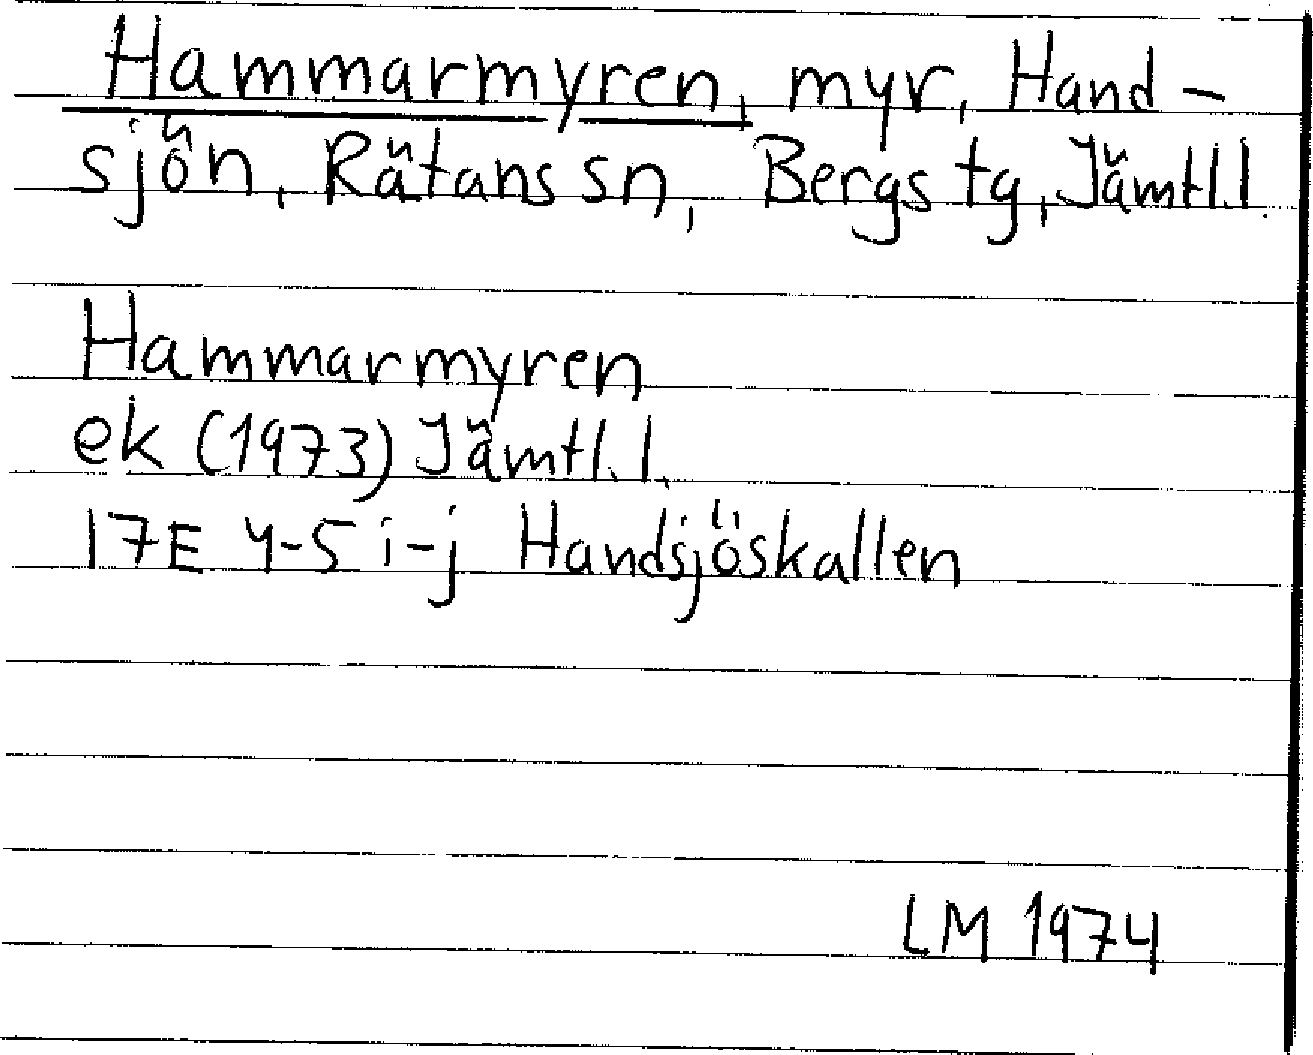 Hammarmyren, myr, Hand-
sjön, Rätans sn, Bergs tg, Jämtl.l.
Hammarmyren
ek (1973) Jämtl.l.
17E 4-5 i-j Handsjöskallen
LM 1974